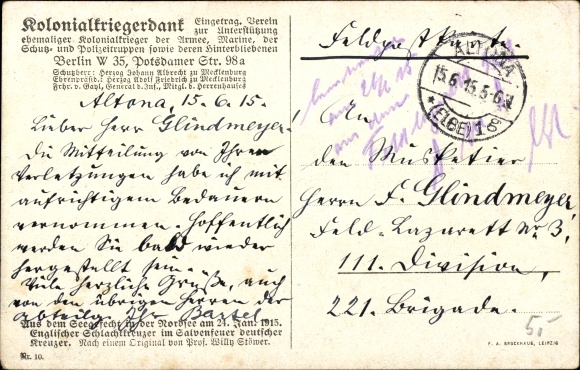 Kolonialkriegerdank Eingetrag. Verein
zur Unterstützung
ehemaliger Kolonialkrieger der Armee, Marine, der
Schutz- und Polizeitruppen sowie deren Hinterbliebenen
Berlin W 35, Potsdamer Str. 98a
Schutzherr: Herzog Johann Albrecht zu Mecklenburg
Ehrenpräsid.: Herzog Adolf Friedrich zu Mecklenburg
Frhr. v. Gayl, General d. Inf., Mitgl. d. Herrenhauses
Altona, 15.6.15.
Lieber Herr Glindmeyer.
Die Mitteilung von Ihren
Verletzungen habe ich mit
aufrichtigem Bedauern
vernommen. Hoffentlich
werden Sie bald wieder
hergestellt sein.
Viele herzliche Grüße, auch
von den übrigen Herren der
Abteilg. Ihr Bartel
Aus dem Seegefecht in der Nordsee am 24. Jan. 1915.
Englischer Schlachtkreuzer im Salvenfeuer deutscher
Kreuzer. Nach einem Original von Prof. Willy Stöwer.
Nr. 10.
Feldpostkarte.
ALTONA
15.6.15.5-6N
* (ELBE) 1 *
An
den Musketier
Herrn F. Glindmeyer,
Feld-Lazarett № 3,
111. Division,
221. Brigade.
5,-
F. A. BROCKHAUS, LEIPZIG